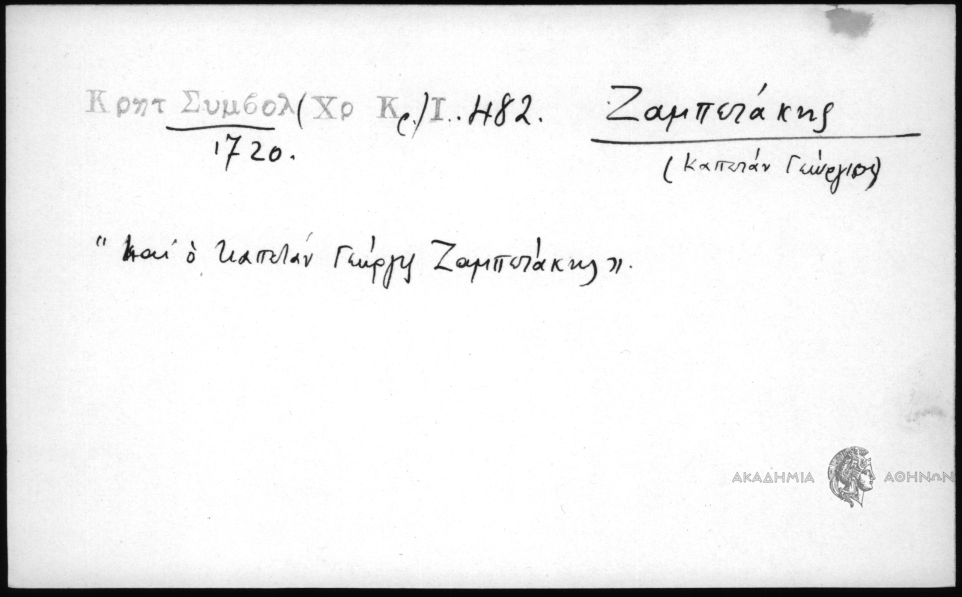 Κρητ Συμβολ (Χρ Κρ.) Ι.. 482. Ζαμπετάκης
1720. (Καπετάν Γεώργιος)
"και ὁ Καπετάν Γεώργης Ζαμπετάκης".
ΑΚΑΔΗΜΙΑ ΑΘΗΝΩΝ